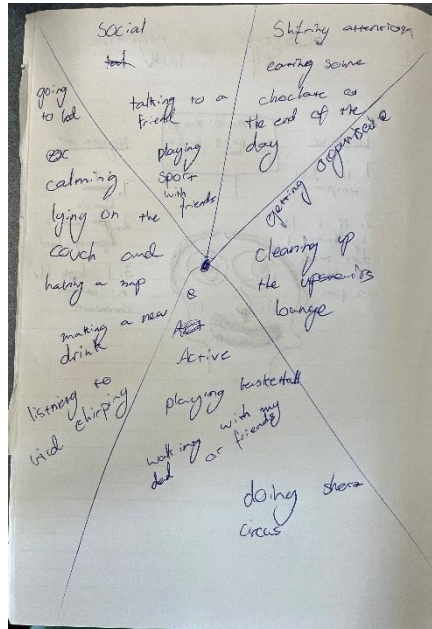 Social
talking to a
friend
playing
sport
with
friends
Shifring attention
earing some
choclate at
the end of the
day
getting organised
cleaning up
the upstairs
lounge
going
to bed
calming
lying on the
couch and
having a nap
making a new
drink
listning to
chirping
Active
playing basketball
walking with my
dad or friends
doing
circus